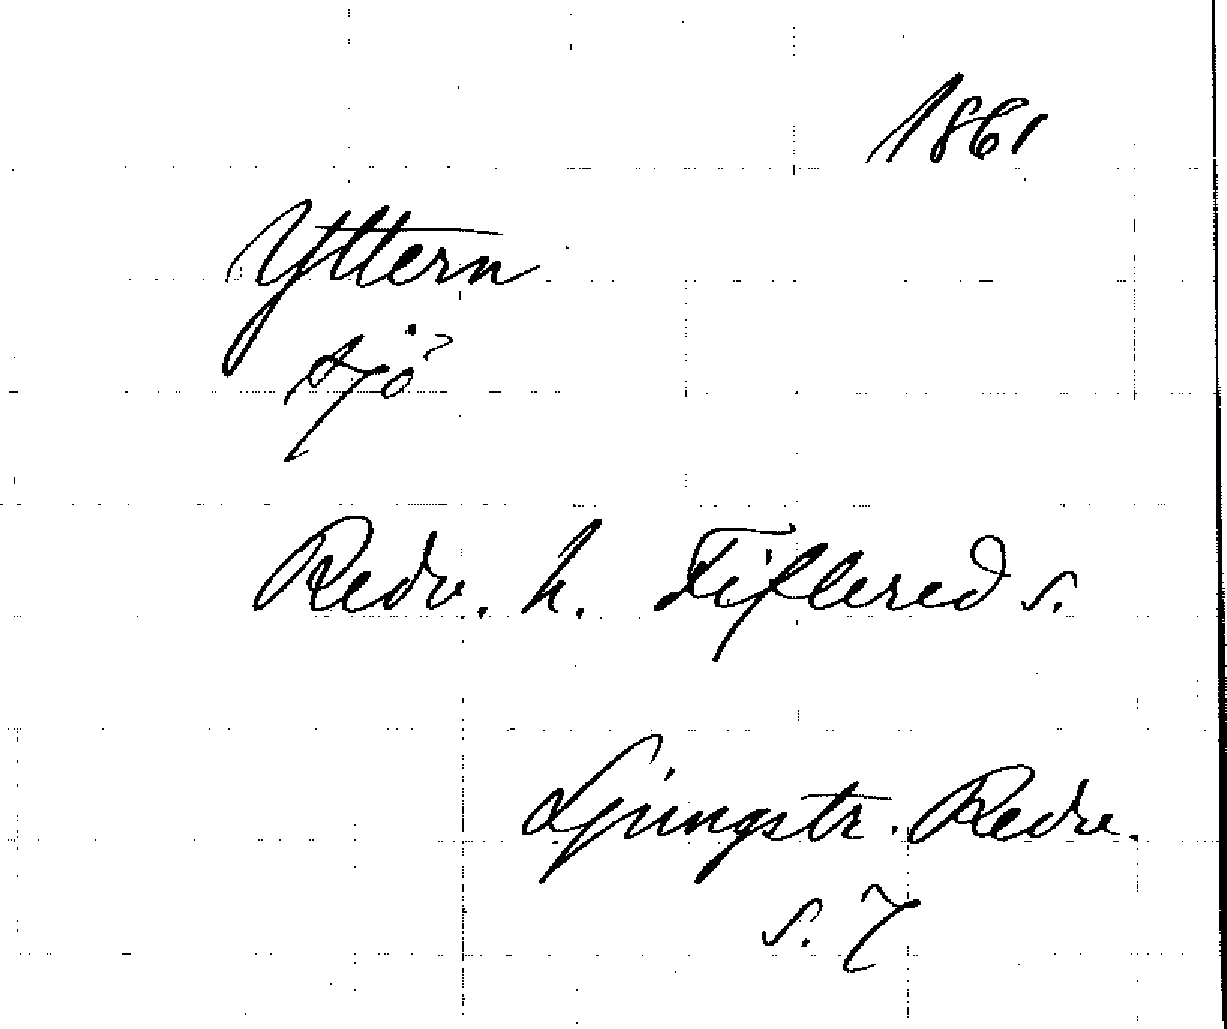 1861
Yttern
sjö
Redv. h. Tiflered s.
Ljungstr. Redv.
s. 7